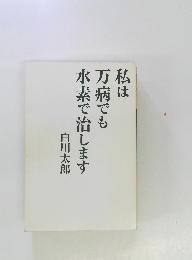 私は
万病でも
水素で治します
白川太郎